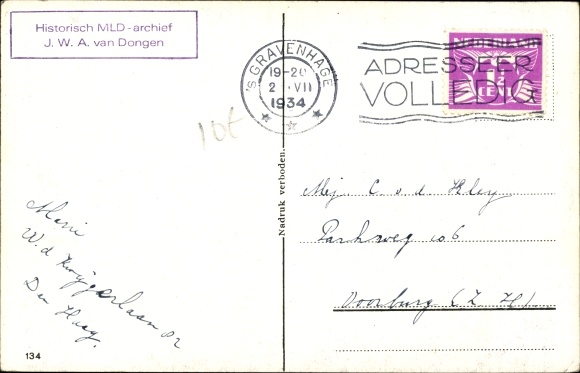 Historisch MLD-archief
J. W. A. van Dongen
'S GRAVENHAGE
19-20
2 .VII
1934
ADRESSEER
VOLLEDIG
NEDERLAND
CENT
10t
Nadruk verboden.
Mej C. v. d. Kley
Parkweg 106
Voorburg (Z. H)
Marie
W. d
Den Haag.
134